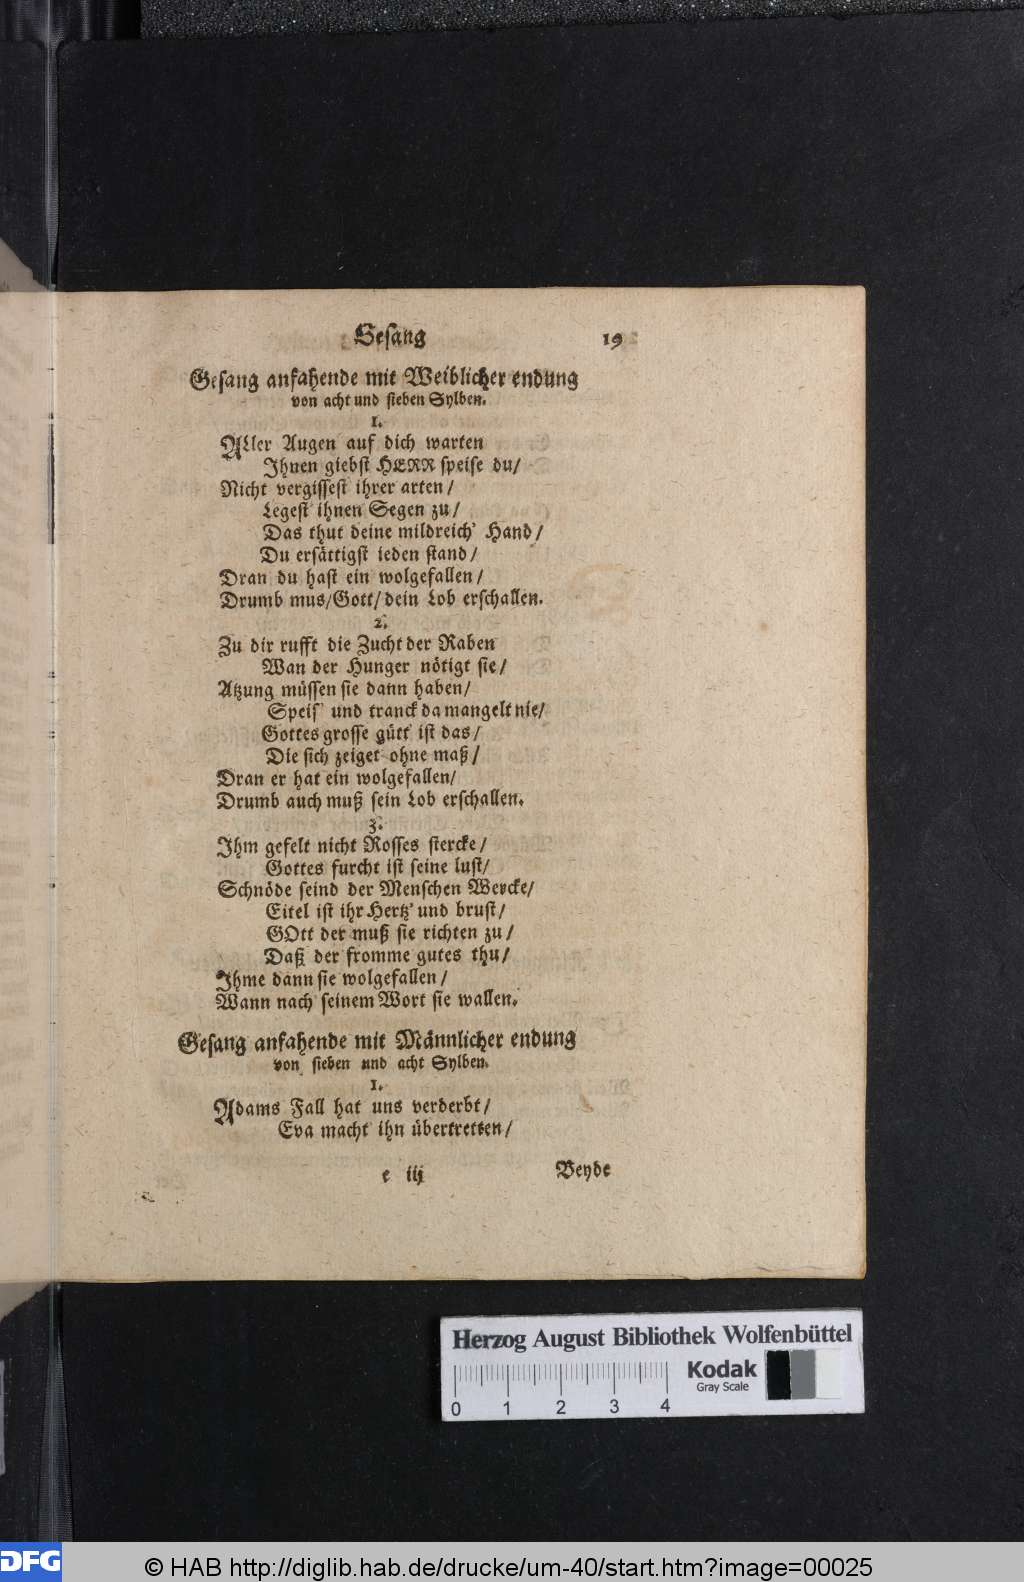 Gesang 19
Gesang anfahende mit Weiblicher endung
von acht und sieben Sylben.
1.
ALler Augen auf dich warten
Ihnen giebst HERR speise du/
Nicht vergissest ihrer arten/
Legest ihnen Segen zu/
Das thut deine mildreich' Hand/
Du ersättigst ieden stand/
Dran du hast ein wolgefallen/
Drumb mus/Gott/dein Lob erschallen.
2.
Zu dir rufft die Zucht der Raben
Wan der Hunger nötigt sie/
Atzung müssen sie dann haben/
Speis' und tranck da mangelt nie/
Gottes grosse gütt' ist das/
Die sich zeiget ohne maß/
Dran er hat ein wolgefallen/
Drumb auch muß sein Lob erschallen.
3.
Ihm gefelt nicht Rosses stercke/
Gottes furcht ist seine lust/
Schnöde seind der Menschen Wercke/
Eitel ist ihr Hertz' und brust/
GOtt der muß sie richten zu/
Daß der fromme gutes thu/
Ihme dann sie wolgefallen/
Wann nach seinem Wort sie wallen.
Gesang anfahende mit Männlicher endung
von sieben und acht Sylben.
1.
ADams Fall hat uns verderbt/
Eva macht ihn übertretten/
e iij Beyde
Herzog August Bibliothek Wolfenbüttel
Kodak
Gray Scale
0 1 2 3 4
DFG
© HAB http://diglib.hab.de/drucke/um-40/start.htm?image=00025